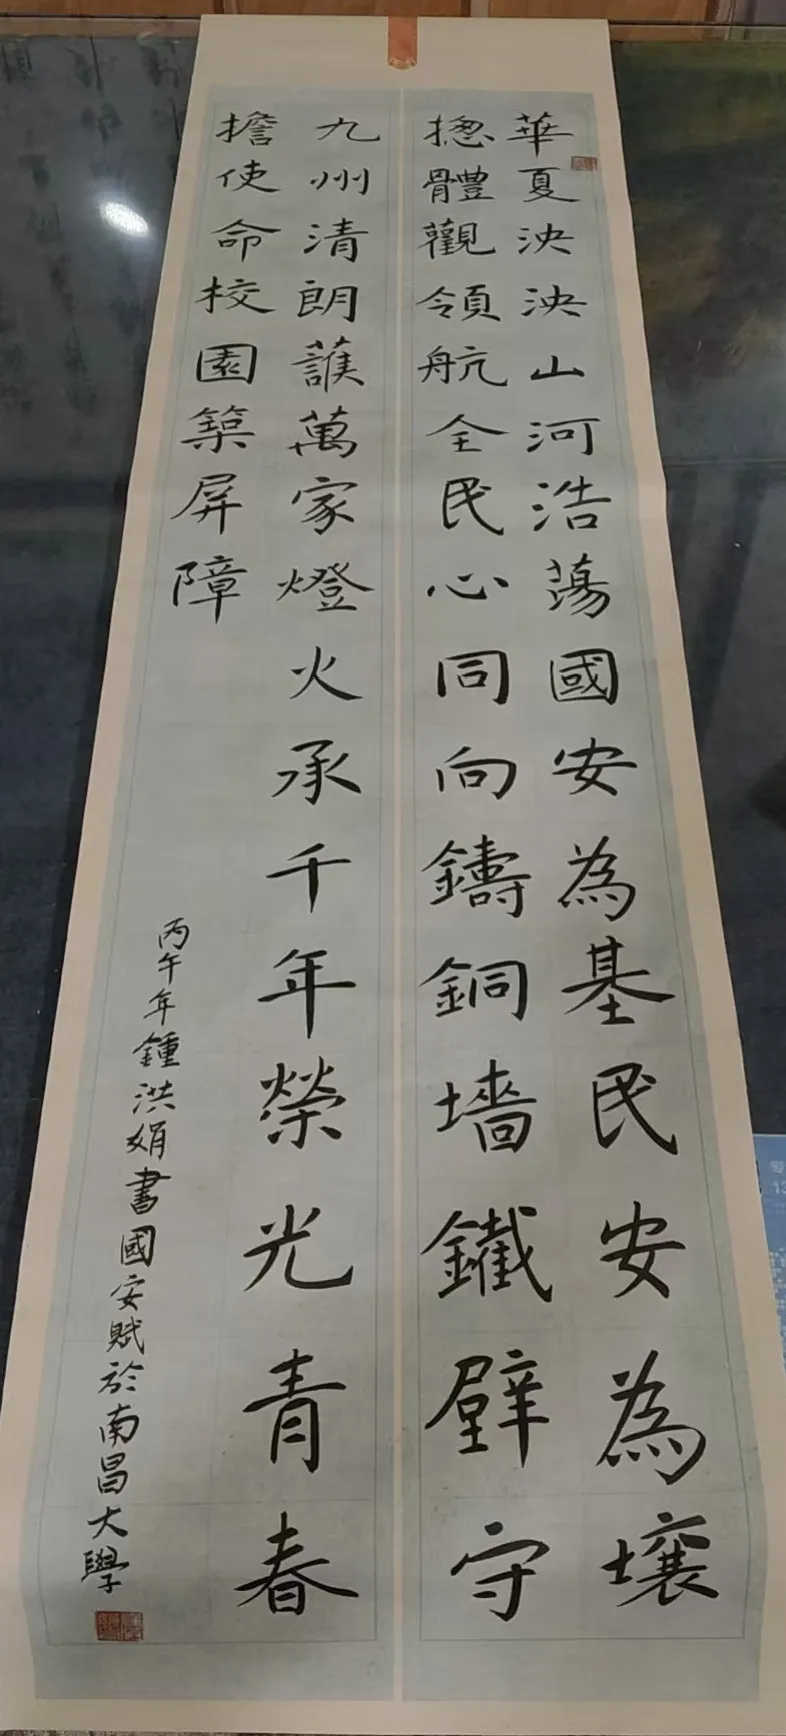 華夏泱泱山河浩蕩國安為基民安為壤
摠體觀領航全民心同向鑄銅墻鐵壁守
九州清朗護萬家燈火承千年榮光青春
擔使命校園築屏障
丙午年鍾洪娟書國安賦於南昌大學